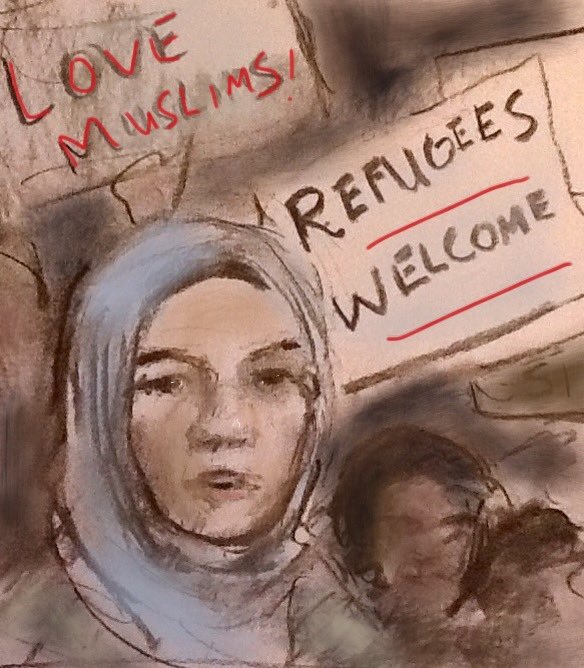 LOVE
MUSLIMS!
REFUGEES
WELCOME